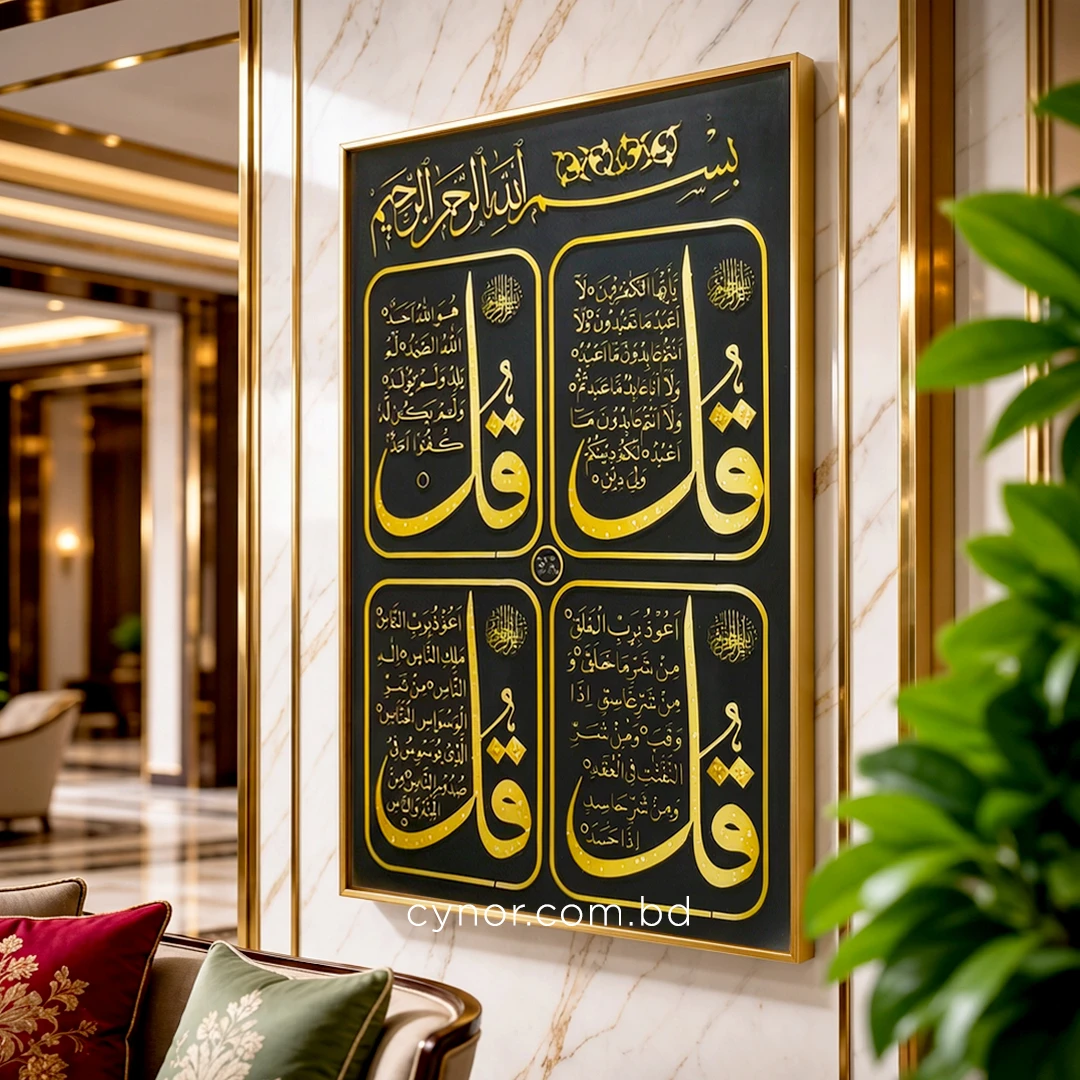 بِسْمِ اللهِ الرَّحْمٰنِ الرَّحِيْمِ
قُلْ
يٰٓاَيُّهَا الْكٰفِرُوْنَ ۝ لَآ
اَعْبُدُ مَا تَعْبُدُوْنَ ۝ وَلَآ
اَنْتُمْ عٰبِدُوْنَ مَآ اَعْبُدُ ۝
وَلَآ اَنَا عَابِدٌ مَّا عَبَدْتُّمْ ۝
وَلَآ اَنْتُمْ عٰبِدُوْنَ مَآ
اَعْبُدُ ۝ لَكُمْ دِيْنُكُمْ
وَلِيَ دِيْنِ ۝
قُلْ
هُوَ اللهُ اَحَدٌ ۝
اَللهُ الصَّمَدُ ۝ لَمْ
يَلِدْ وَلَمْ يُوْلَدْ ۝
وَلَمْ يَكُنْ لَّهٗ
كُفُوًا اَحَدٌ
۝
قُلْ
اَعُوْذُ بِرَبِّ الْفَلَقِ ۝
مِنْ شَرِّ مَا خَلَقَ ۝ وَ
مِنْ شَرِّ غَاسِقٍ اِذَا
وَقَبَ ۝ وَمِنْ شَرِّ
النَّفّٰثٰتِ فِي الْعُقَدِ ۝
وَمِنْ شَرِّ حَاسِدٍ
اِذَا حَسَدَ ۝
قُلْ
اَعُوْذُ بِرَبِّ النَّاسِ ۝
مَلِكِ النَّاسِ ۝ اِلٰهِ
النَّاسِ ۝ مِنْ شَرِّ
الْوَسْوَاسِ الْخَنَّاسِ ۝
الَّذِيْ يُوَسْوِسُ فِيْ
صُدُوْرِ النَّاسِ ۝ مِنَ
الْجِنَّةِ وَالنَّاسِ ۝
cynor.com.bd